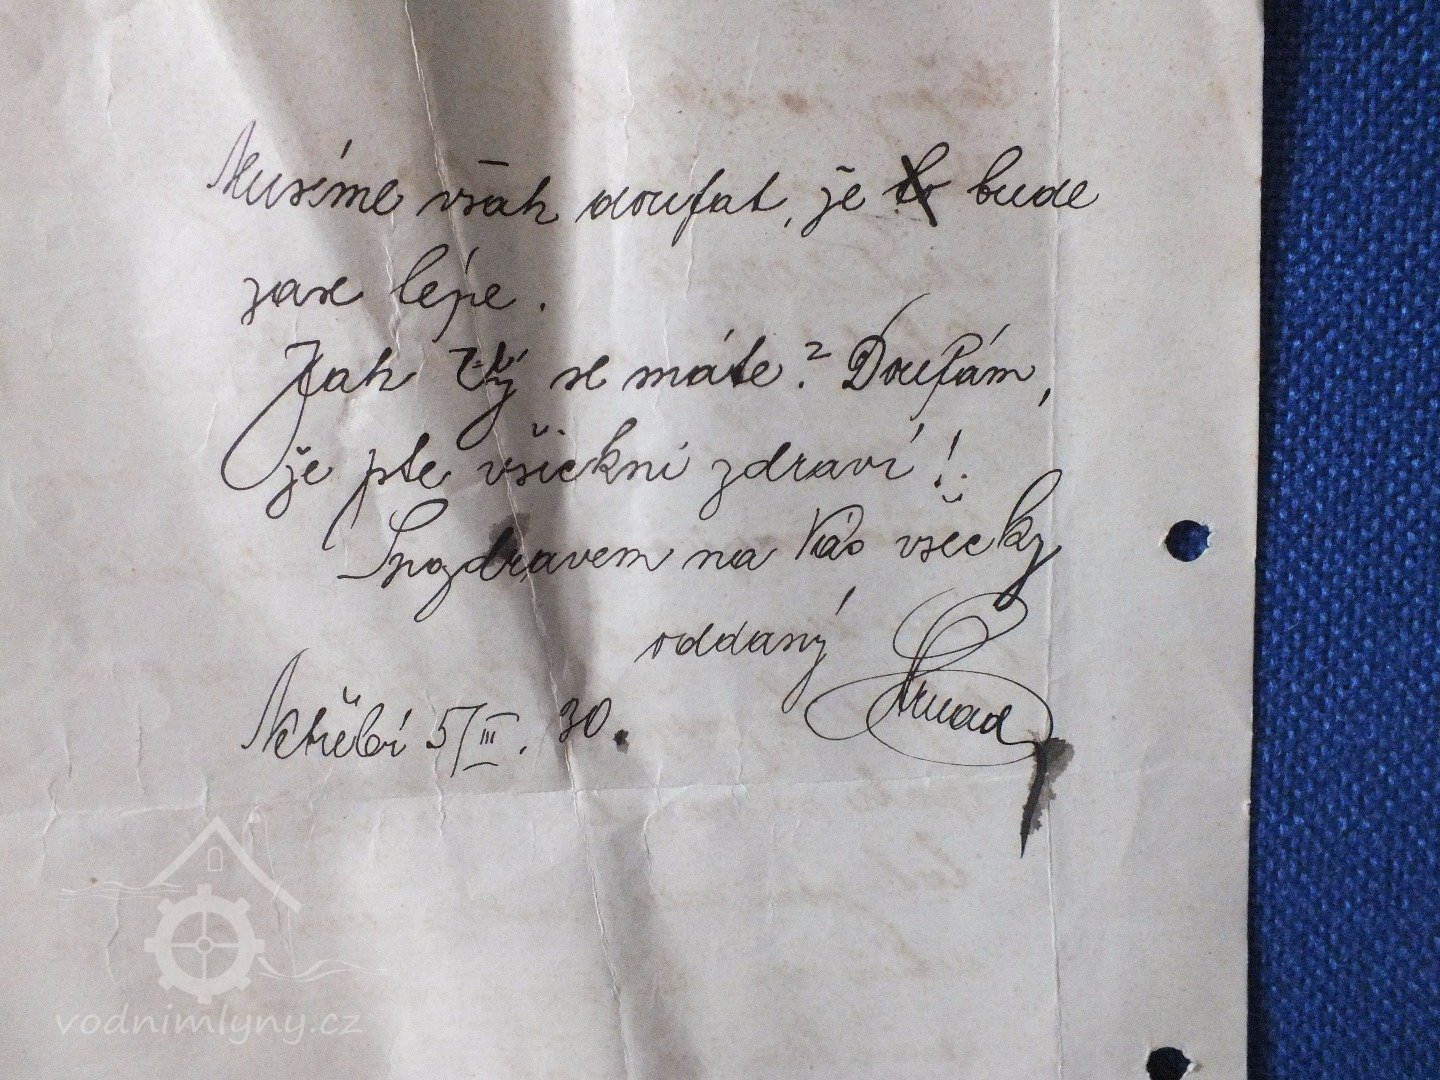 Musíme však doufat, že bude
zase lépe.
Jak se máte? Doufám,
že jste všickni zdraví!
S pozdravem na Vás všecky
oddaný
Netřebí 5/III. 30.
vodnimlyny.cz